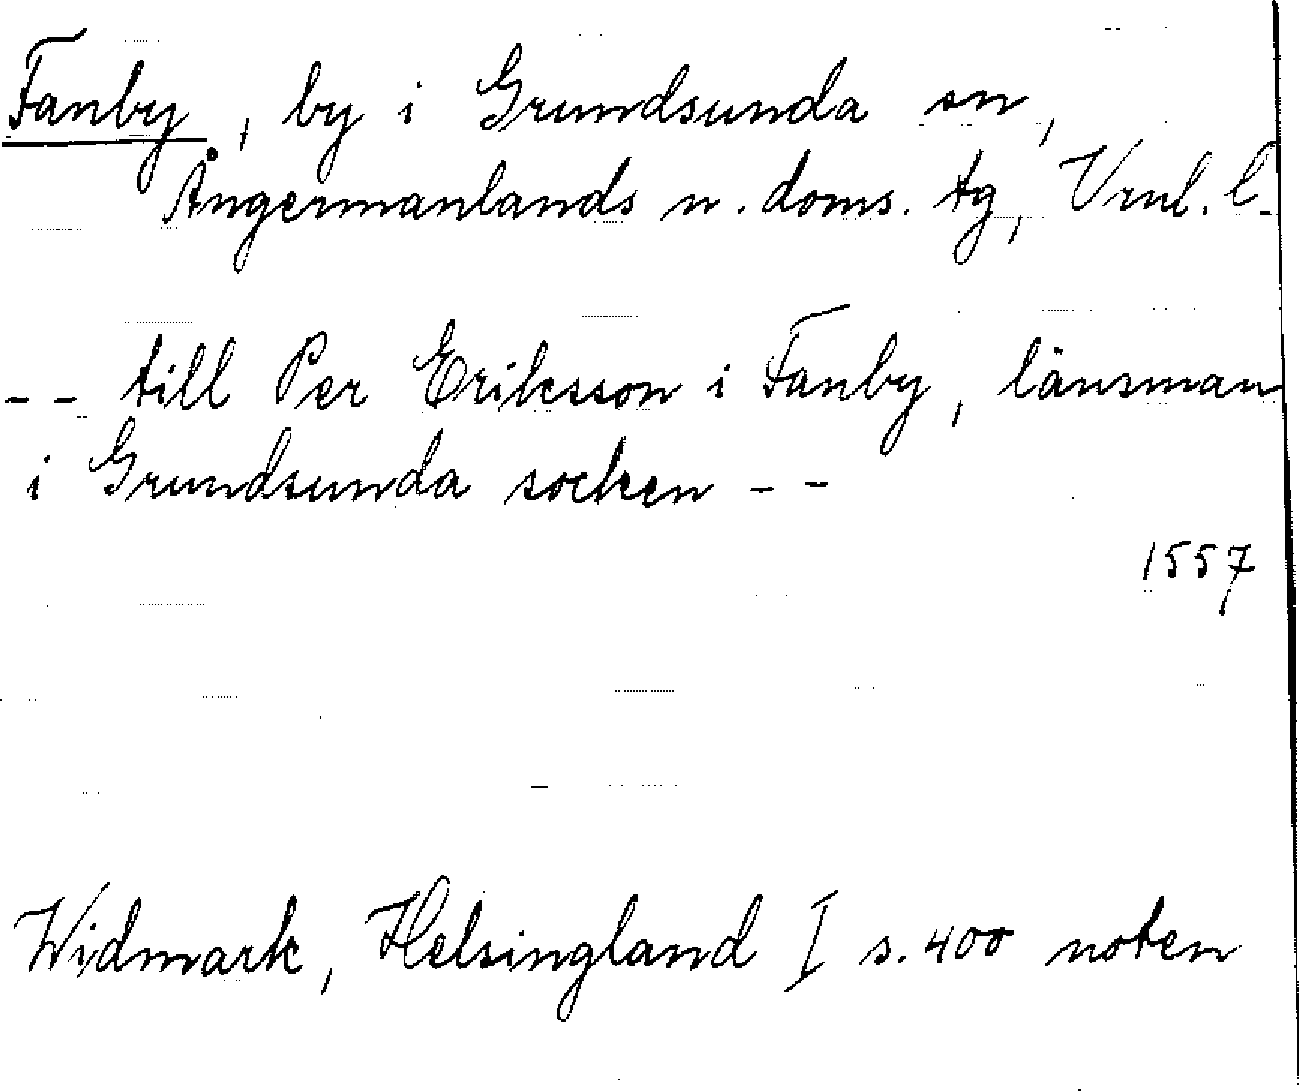 Fanby, by i Grundsunda sn,
Ångermanlands n. doms. tg, Vrnl. l.
-- till Per Eriksson i Fanby, länsman
i Grundsunda socken --
1557
Widmark, Helsingland I s. 400 noten